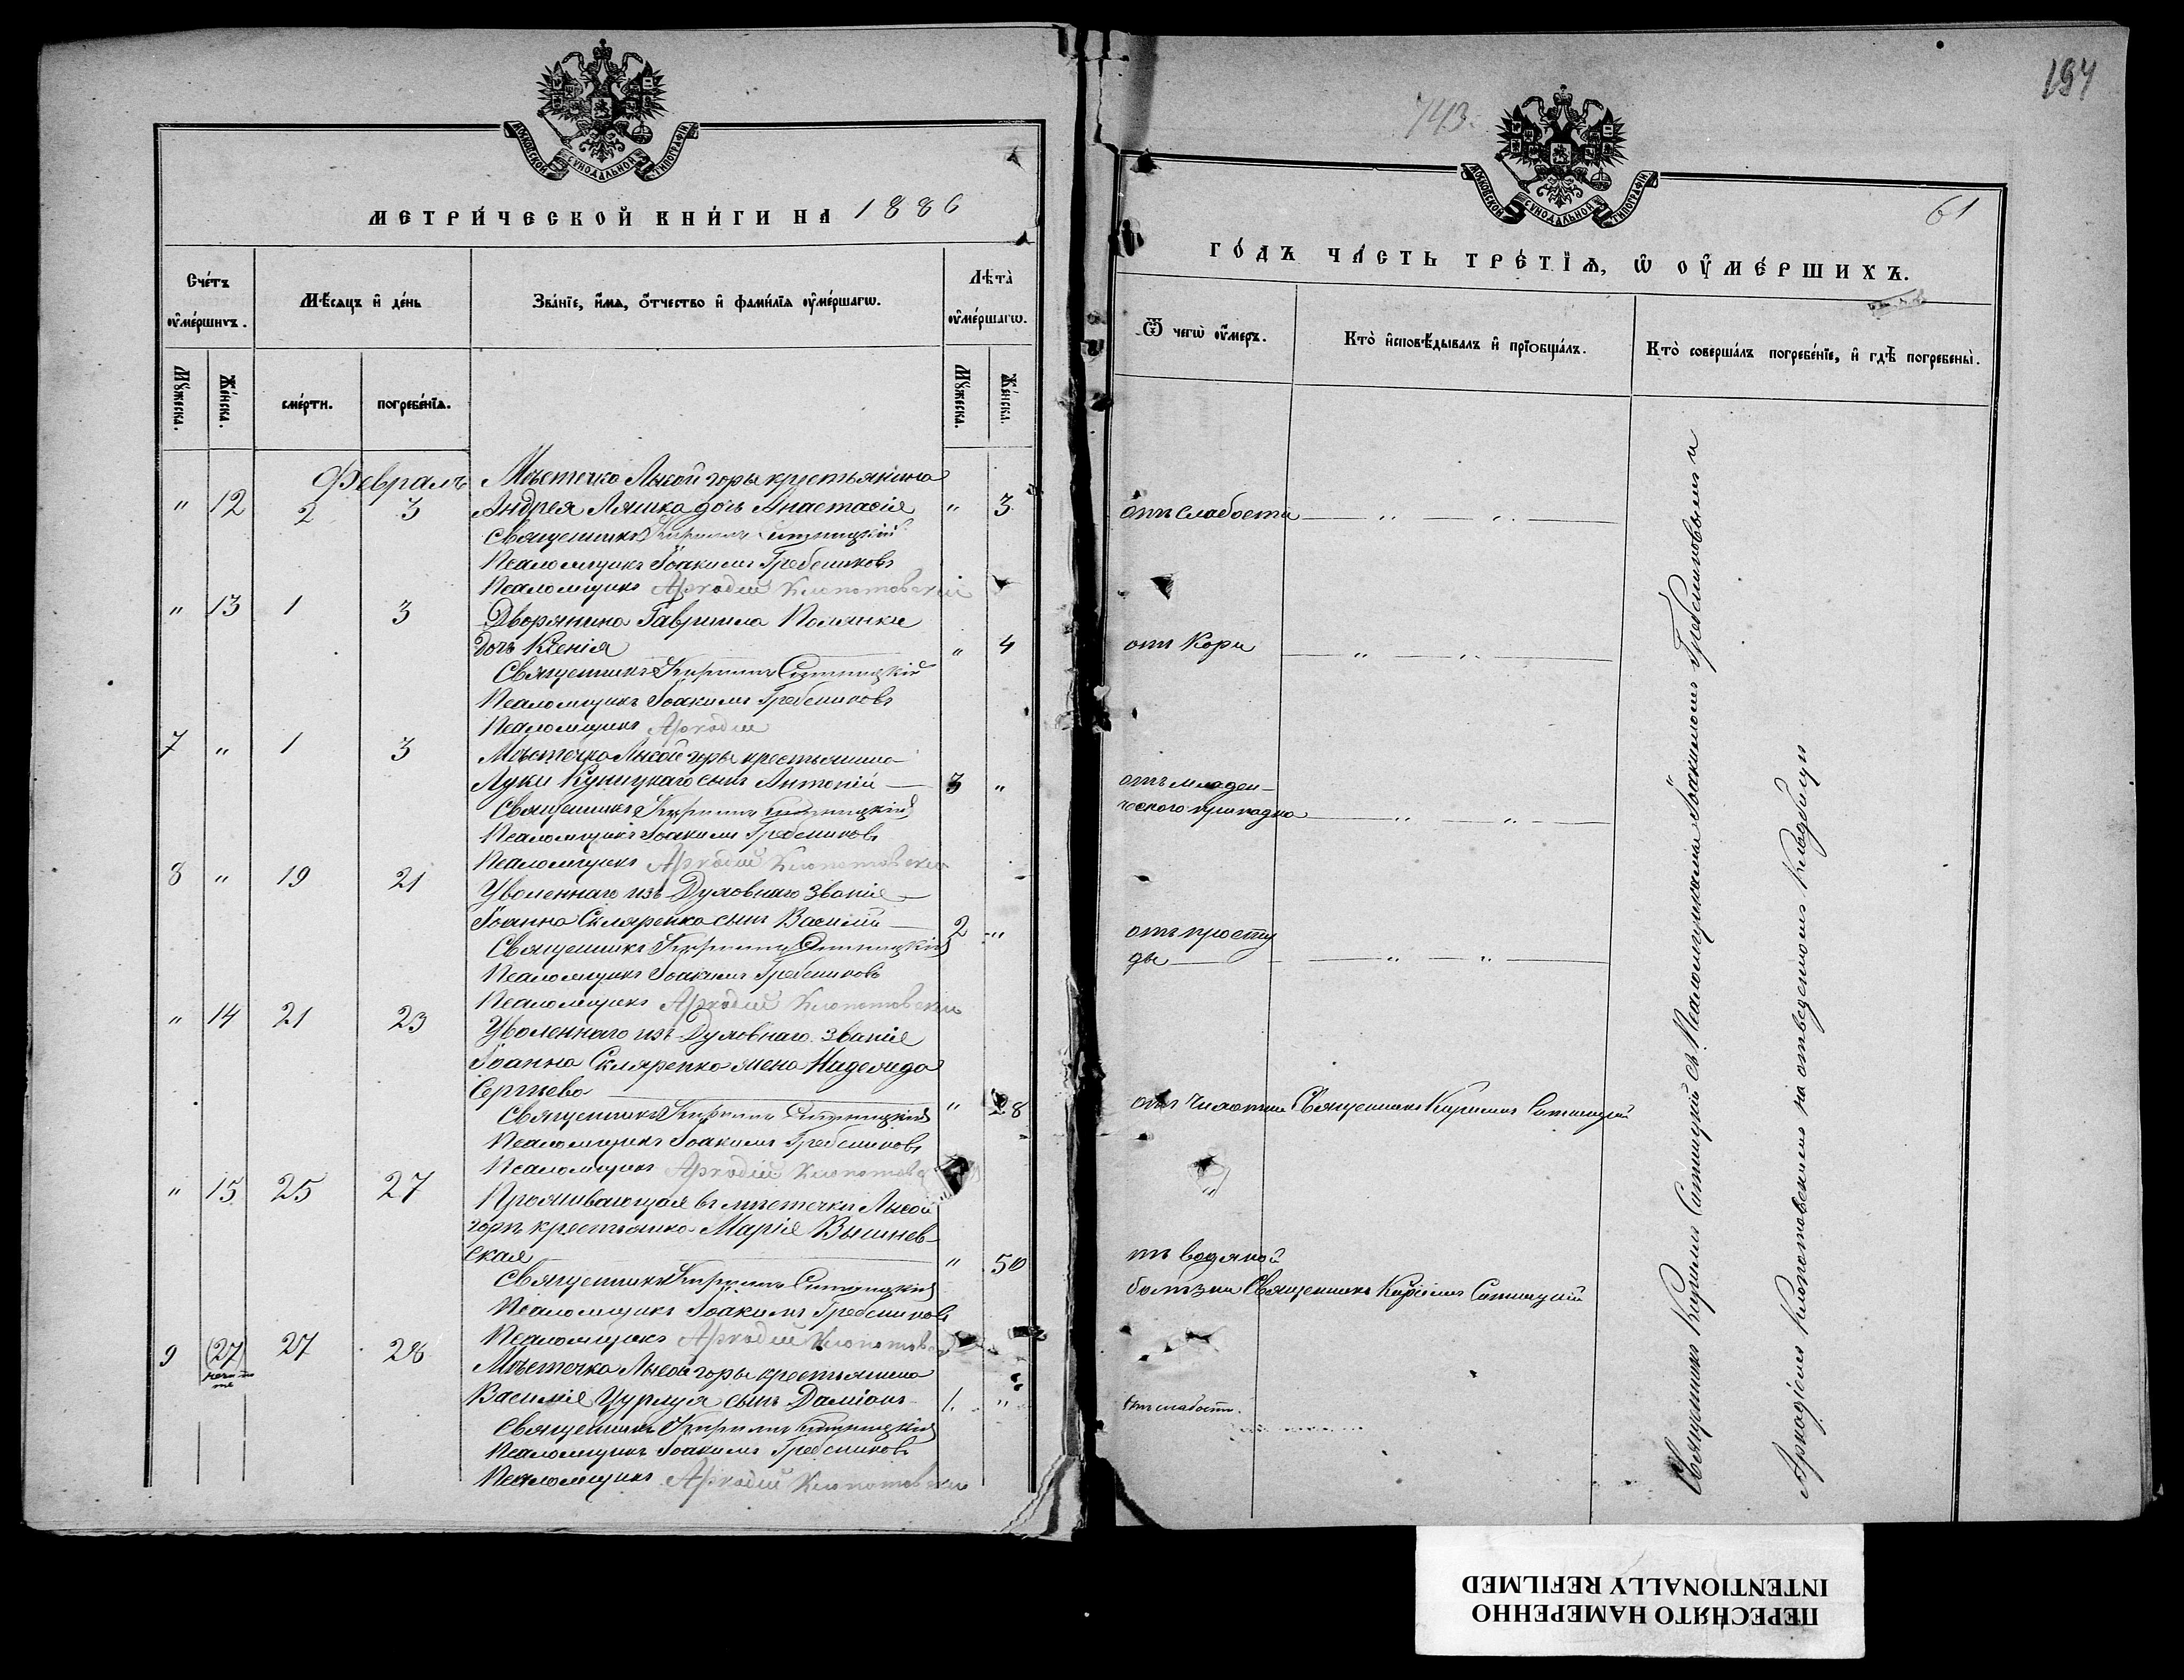 МОСКОВСКОЙ СѴНОДАЛЬНОЙ ТИПОГРАФІИ
МЕТРИ́ЧЕСКОЙ КНИ́ГИ НА 1886
Сче́тъ ᲂу҆ме́ршихъ.
Мѣ́сяцъ и҆ де́нь
Зва́нїе, и҆́мѧ, ѻ҆́тчество и҆ фами́лїѧ ᲂу҆ме́ршагѡ.
Лѣ́та ᲂу҆ме́ршагѡ.
Мꙋ́жеска.
Же́нска.
сме́рти.
погребе́нїѧ.
Мꙋ́жеска.
Же́нска.
Февраль
Мѣстечка Лысой горы крестьянина
" 12 2 3 Андрея Ляшка дочь Анастасія " 3
Священникъ Кириллъ Ситницкій
Псаломщикъ Іоакимъ Гребенниковъ
Псаломщикъ Аркадій Клопотовскій
" 13 1 3 Дворянина Гавриила Полянки
дочь Ксенія " 4
Священникъ Кириллъ Ситницкій
Псаломщикъ Іоакимъ Гребенниковъ
Псаломщикъ Аркадій
7 " 1 3 Мѣстечка Лысой горы крестьянина
Луки Куницкаго сынъ Антоній 3 "
Священникъ Кириллъ Ситницкій
Псаломщикъ Іоакимъ Гребенниковъ
Псаломщикъ Аркадій Клопотовскій
8 " 19 21 Уволеннаго изъ Духовнаго званія
Іоанна Скляренка сынъ Василій 2 "
Священникъ Кириллъ Ситницкій
Псаломщикъ Іоакимъ Гребенниковъ
Псаломщикъ Аркадій Клопотовскій
" 14 21 23 Уволеннаго изъ Духовнаго званія
Іоанна Скляренка жена Надежда
Сергіева " 28
Священникъ Кириллъ Ситницкій
Псаломщикъ Іоакимъ Гребенниковъ
Псаломщикъ Аркадій Клопотовс
" 15 25 27 Проживающая въ мѣстечкѣ Лысой
горѣ крестьянка Марія Вишнев-
ская " 50
Священникъ Кириллъ Ситницкій
Псаломщикъ Іоакимъ Гребенниковъ
Псаломщикъ Аркадій Клопотовс
9 (27) 27 28 Мѣстечка Лысой горы крестьянина
Василія Цурлуя сынъ Даміанъ 1. "
Священникъ Кириллъ Ситницкій
Псаломщикъ Іоакимъ Гребенниковъ
Псаломщикъ Аркадій Клопотовскій
194
743.
МОСКОВСКОЙ СѴНОДАЛЬНОЙ ТИПОГРАФІИ
61
ГО́ДЪ ЧА́СТЬ ТРЕ́ТЇѦ, Ѡ҆ ОУ҆МЕ́РШИХЪ.
Ѿ чегѡ̀ ᲂу҆́меръ.
Кто̀ и҆сповѣ́дывалъ и҆ прїобща́лъ.
Кто̀ соверша́лъ погребе́нїе, и҆ гдѣ̀ погребены̀.
отъ слабости — " — " —
отъ Кори — " — " —
отъ младен-
ческаго припадка — " — " —
отъ просту
ды — " — " —
отъ чахотки Священникъ Кириллъ Ситницкій
тъ водяной
болѣзни Священникъ Кириллъ Ситницкій
отъ слабости.
Священникъ Кириллъ Ситницкій съ Псаломщиками Іоакимомъ Гребенниковымъ и
Аркадіемъ Клопотовскимъ на отведенномъ Кладбищѣ
ПЕРЕСНЯТО НАМЕРЕННО
INTENTIONALLY REFILMED